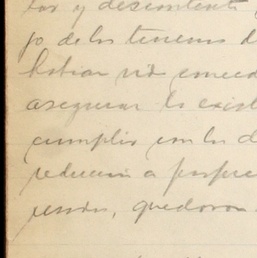 y descontent
jo de los terrenos d
habian sido conced
asegurar la exist
cumplir con los d
reducian a perjuic
resados, quedaron